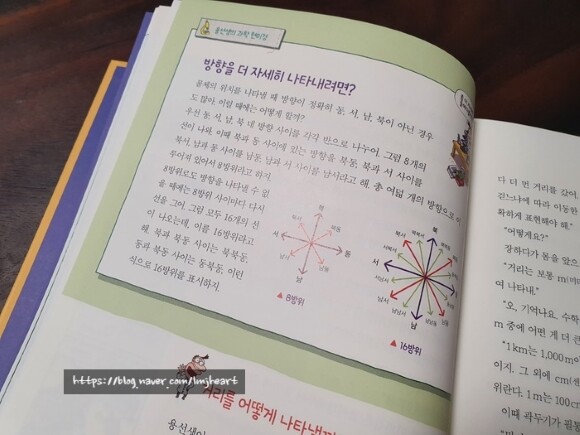 용선생의 과학 현미경
방향을 더 자세히 나타내려면?
물체의 위치를 나타낼 때 방향이 정확히 동, 서, 남, 북이 아닌 경우
도 많아. 이럴 때에는 어떻게 할까?
우선 동, 서, 남, 북 네 방향 사이를 각각 반으로 나누어, 그럼 8개의
선이 나와. 이때 북과 동 사이에 있는 방향을 북동, 북과 서 사이를
북서, 남과 동 사이를 남동, 남과 서 사이를 남서라고 해. 총 여덟 개의 방향으로 이
루어져 있어서 8방위라고 하지.
8방위로도 방향을 나타낼 수 없
을 때에는 8방위 사이마다 다시
선을 그어. 그럼 모두 16개의 선
이 나오는데, 이를 16방위라고
해. 북과 북동 사이는 북북동,
동과 북동 사이는 동북동, 이런
식으로 16방위를 표시하지.
북
북서
북동
동
남서
남동
남
▲ 8방위
북
북서
북동
서북서
동
서남서
남서
남동
남남서
남남동
남
▲ 16방위
https://blog.naver.com/lmjheart
거리를 어떻게 나타낼까
용선생이
다 더 먼 거리를 갔어.
걷느냐에 따라 이동한
확하게 표현해야 해."
"어떻게요?"
장하다가 몸을 앞으
"거리는 보통 m(미터
여 나타내."
"오, 기억나요. 수학
m 중에 어떤 게 더 큰
"1km는 1,000m이
이지. 그 외에 cm(센
위란다. 1m는 100c
이때 곽두기가 필통